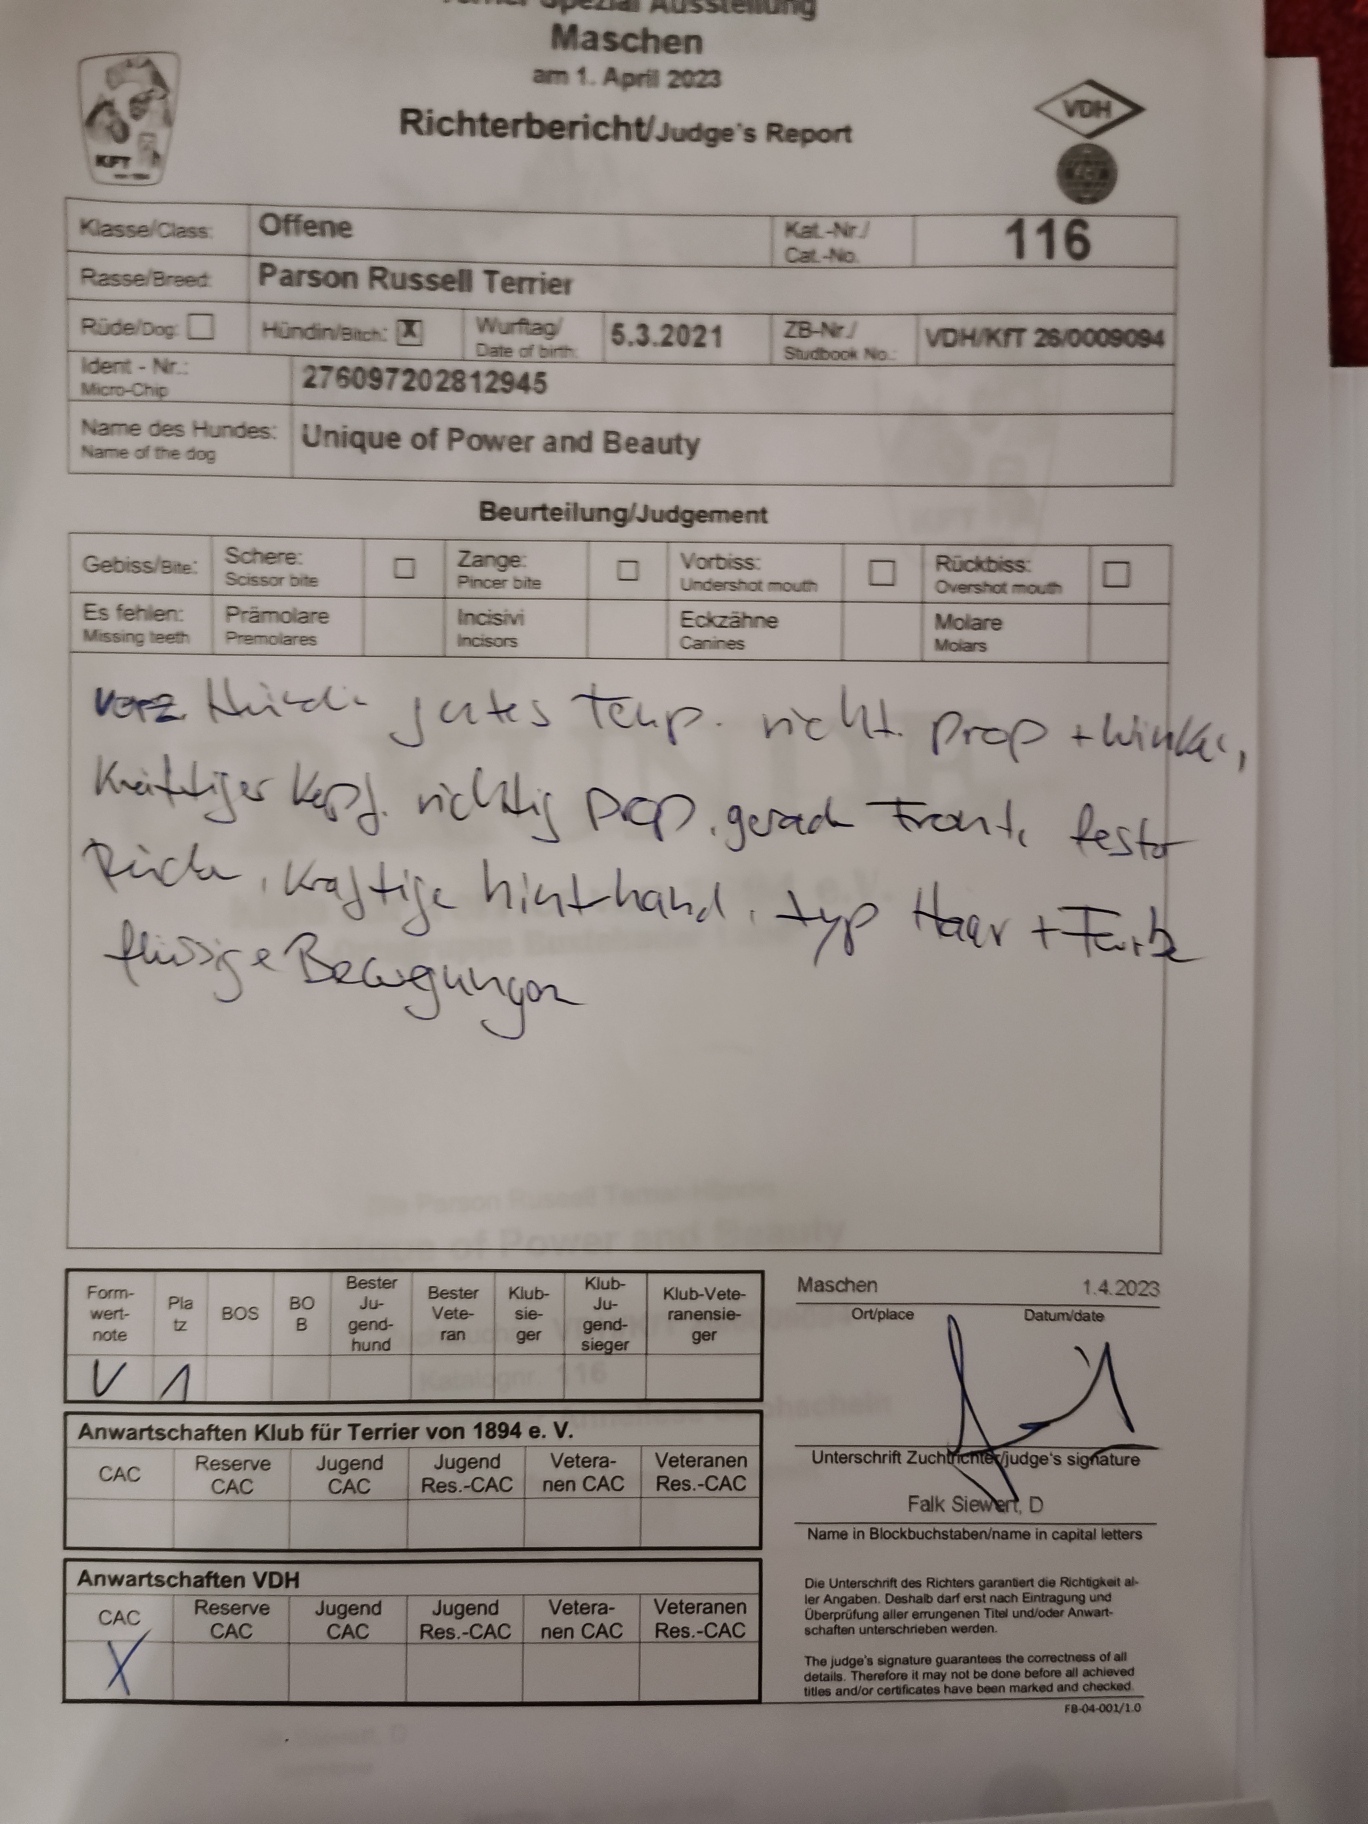 Terrier Spezial Ausstellung
Maschen
am 1. April 2023
Richterbericht/Judge's Report
KFT
VDH
Klasse/Class: Offene Kat.-Nr./ Cat.-No. 116
Rasse/Breed: Parson Russell Terrier
Rüde/Dog: Hündin/Bitch: X Wurftag/ Date of birth: 5.3.2021 ZB-Nr./ Studbook No.: VDH/KfT 26/0009094
Ident - Nr.: Micro-Chip 276097202812945
Name des Hundes: Name of the dog Unique of Power and Beauty
Beurteilung/Judgement
Gebiss/Bite: Schere: Scissor bite Zange: Pincer bite Vorbiss: Undershot mouth Rückbiss: Overshot mouth
Es fehlen: Missing teeth Prämolare Premolares Incisivi Incisors Eckzähne Canines Molare Molars
vorz. Hündin gutes Temp. richt. Prop + Winkel,
Kräftiger Kopf. richtig prop, gerade Front, fester
Rücken, kräftige Hinterhand, typ Haar + Farbe
flüssige Bewegungen
Form-wert-note Pla tz BOS BO B Bester Ju-gend-hund Bester Vete-ran Klub-sie-ger Klub-Ju-gend-sieger Klub-Vete-ranensie-ger
V 1
Anwartschaften Klub für Terrier von 1894 e. V.
CAC Reserve CAC Jugend CAC Jugend Res.-CAC Vetera-nen CAC Veteranen Res.-CAC
Anwartschaften VDH
CAC Reserve CAC Jugend CAC Jugend Res.-CAC Vetera-nen CAC Veteranen Res.-CAC
X
Maschen 1.4.2023
Ort/place Datum/date
Unterschrift Zuchtrichter/judge's signature
Falk Siewert, D
Name in Blockbuchstaben/name in capital letters
Die Unterschrift des Richters garantiert die Richtigkeit al-
ler Angaben. Deshalb darf erst nach Eintragung und
Überprüfung aller errungenen Titel und/oder Anwart-
schaften unterschrieben werden.
The judge's signature guarantees the correctness of all
details. Therefore it may not be done before all achieved
titles and/or certificates have been marked and checked.
FB-04-001/1.0